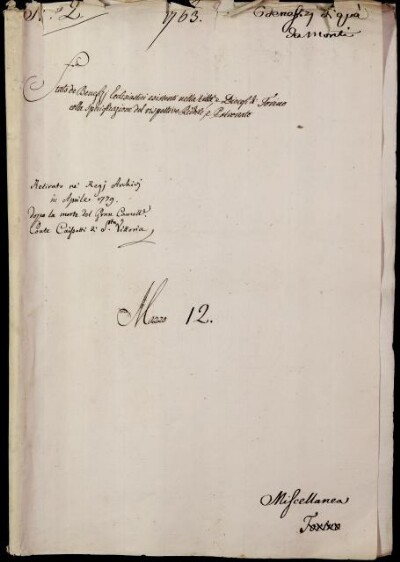 N.º 2
1763.
Benefizj di quà
da Monti
Stato de Benefizj Ecclesiastici esistenti nella Città, e Diocesi di Torino
colla specificazione del rispettivo Reddito, e Patronato
Retirato ne Regj Archivj
in Aprile 1779.
dopo la morte del Gran Cancell.e
Conte Caissotti di S.ta Vittoria
Mazzo 12.
Miscellanea
Torino